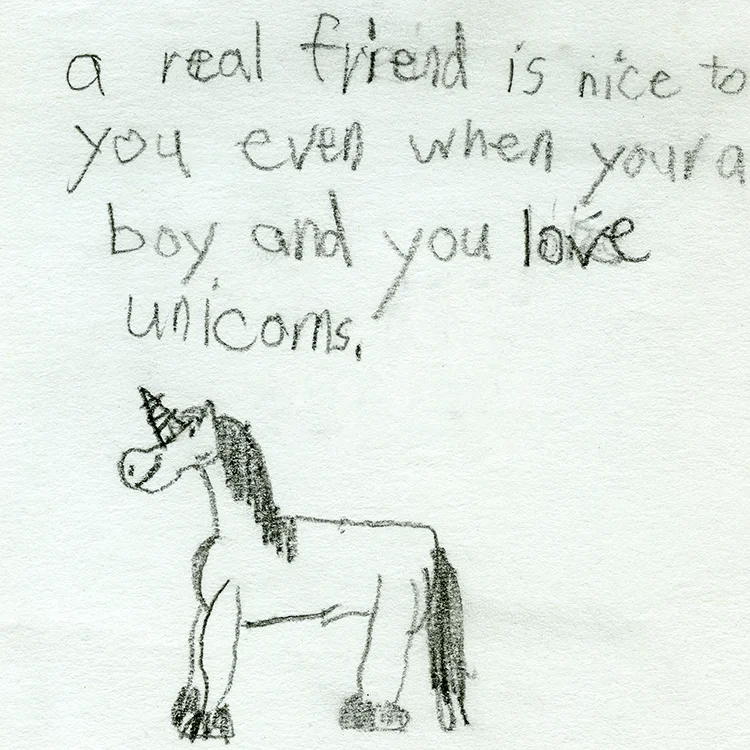 a real friend is nice to
you even when your a
boy and you love
unicorns.